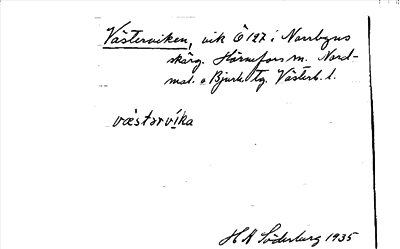 Västerviken, vik Ö 127 i Norrbyns
skärg. Hörnefors sn. Nord-
mal. o Bjurh. tg. Västerb. l.
västərvíka
H A Söderberg 1935